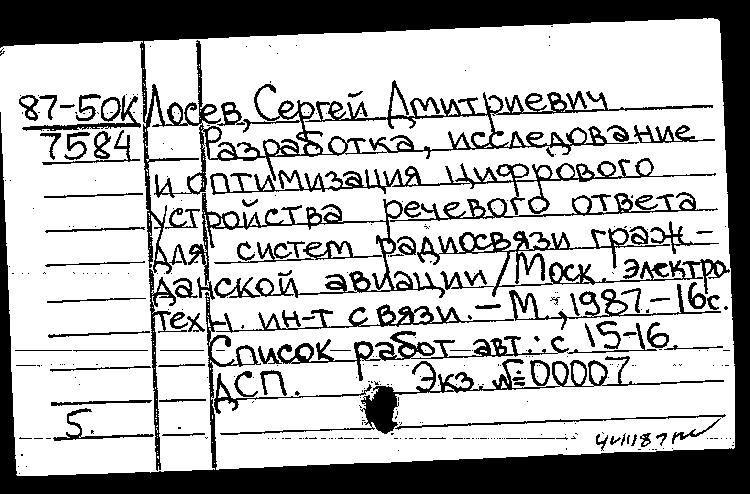 87-50К Лосев, Сергей Дмитриевич
7584 Разработка, исследование
и оптимизация цифрового
устройства речевого ответа
для систем радиосвязи граж-
данской авиации / Моск. электро
техн. ин-т связи. – М., 1987. – 16 с.
Список работ авт.: с. 15-16.
ДСП. Экз. №00007.
5.